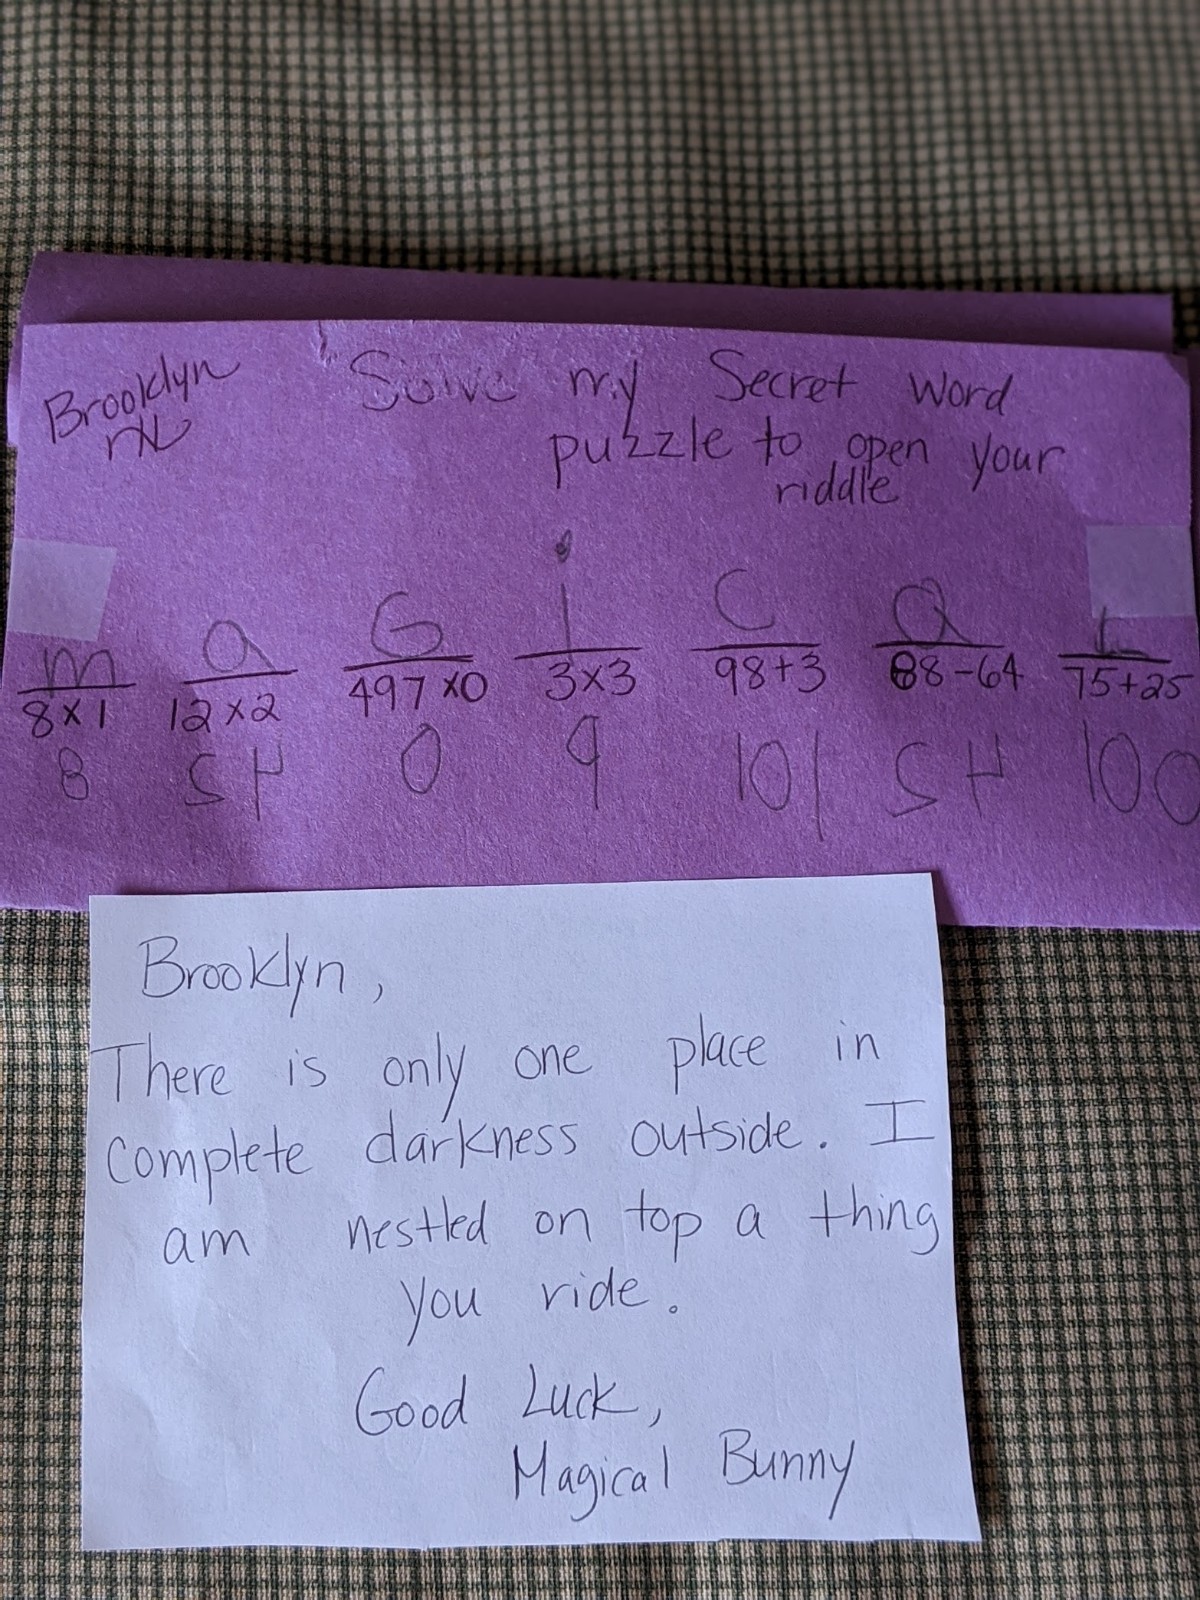 Brooklyn
Solve my Secret word
puzzle to open your
riddle
m a G i C a L
8x1 12x2 497x0 3x3 98+3 88-64 75+25
8 0 9 101 100
Brooklyn,
There is only one place in
complete darkness outside. I
am nestled on top a thing
you ride.
Good Luck,
Magical Bunny